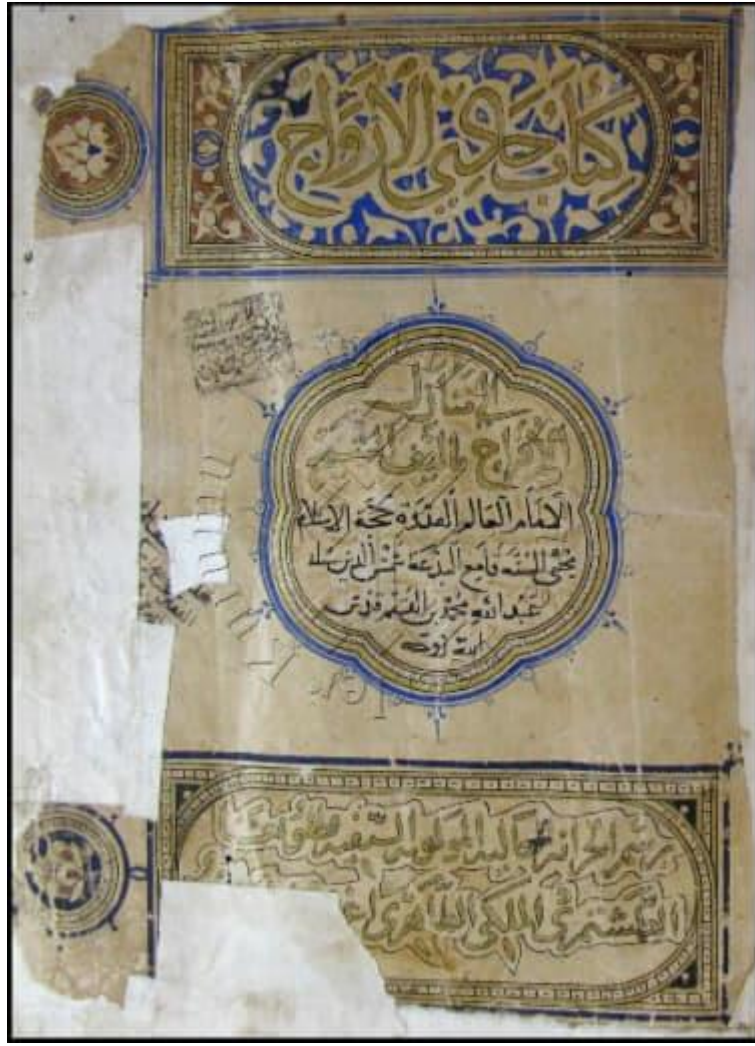 كتاب حادي الارواح
الى منازل
الافراح تاليف الشيخ
الامام العالم القدوة حجة الاسلام
محيي السنة قامع البدعة شمس الدين
عبد الله محمد بن القيم قدس
الله روحه
برسم الخزانة العالية المولوية السيفية
الملكي الظاهري